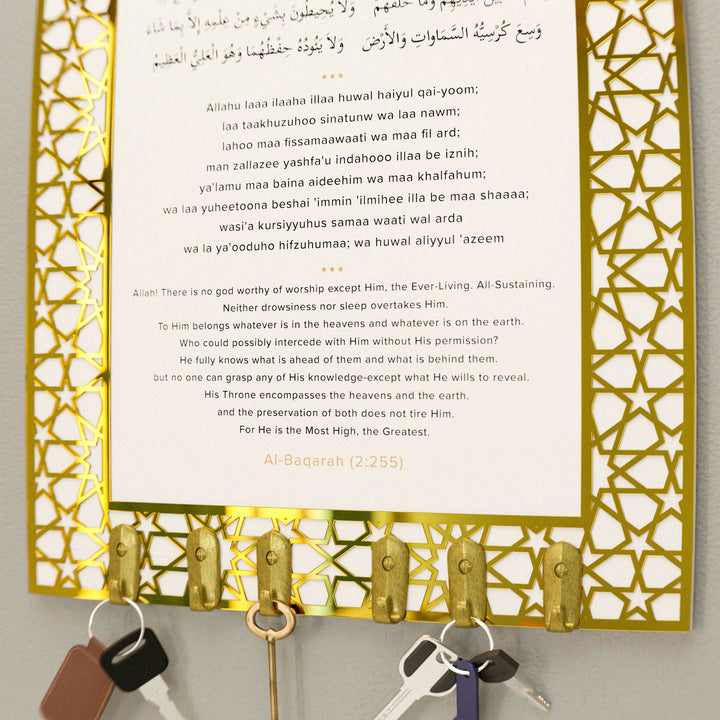 وَلَا يُحِيطُونَ بِشَيْءٍ مِنْ عِلْمِهِ إِلَّا بِمَا شَاءَ
وَسِعَ كُرْسِيُّهُ السَّمَاوَاتِ وَالأَرْضَ وَلَا يَئُودُهُ حِفْظُهُمَا وَهُوَ الْعَلِيُّ الْعَظِيمُ
Allahu laaa ilaaha illaa huwal haiyul qai-yoom;
laa taakhuzuhoo sinatunw wa laa nawm;
lahoo maa fissamaawaati wa maa fil ard;
man zallazee yashfa'u indahooo illaa be iznih;
ya'lamu maa baina aideehim wa maa khalfahum;
wa laa yuheetoona beshai 'immin 'ilmihee illa be maa shaaaa;
wasi'a kursiyyuhus samaa waati wal arda
wa la ya'ooduho hifzuhumaa; wa huwal aliyyul 'azeem
Allah! There is no god worthy of worship except Him, the Ever-Living. All-Sustaining.
Neither drowsiness nor sleep overtakes Him.
To Him belongs whatever is in the heavens and whatever is on the earth.
Who could possibly intercede with Him without His permission?
He fully knows what is ahead of them and what is behind them.
but no one can grasp any of His knowledge-except what He wills to reveal.
His Throne encompasses the heavens and the earth.
and the preservation of both does not tire Him.
For He is the Most High, the Greatest.
Al-Baqarah (2:255)